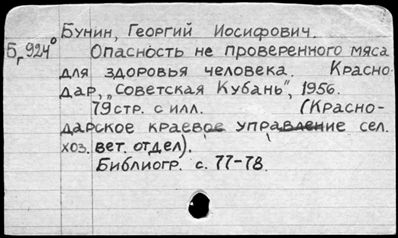 Бунин, Георгий Иосифович.
Бг924⁰ Опасность не проверенного мяса
для здоровья человека. Красно-
дар, „Советская Кубань", 1956.
79 стр. с илл. (Красно-
дарское краевое управление сел.
хоз. вет. отдел).
Библиогр. с. 77-78.